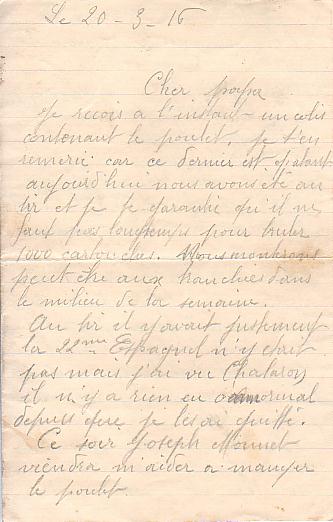 Le 20 - 3 - 16
Cher papa
Je reçois a l'instant un colis
contenant le poulet, je t'en
remerci car ce dernier est épatant
aujourd'hui nous avons été au
tir et je te garantie qu'il ne
faut pas longtemps pour bruler
1000 cartouches. Nous monterons
peut être aux tranchées dans
le milieu de la semaine.
Au tir il y avait justement
la 22me Espagnel n'y était
pas mais j'ai vu Chataron
il n'y a rien eu d'anormal
depuis que je les ai quitté.
Ce soir Joseph Monnet
viendra m'aider a manger
le poulet.